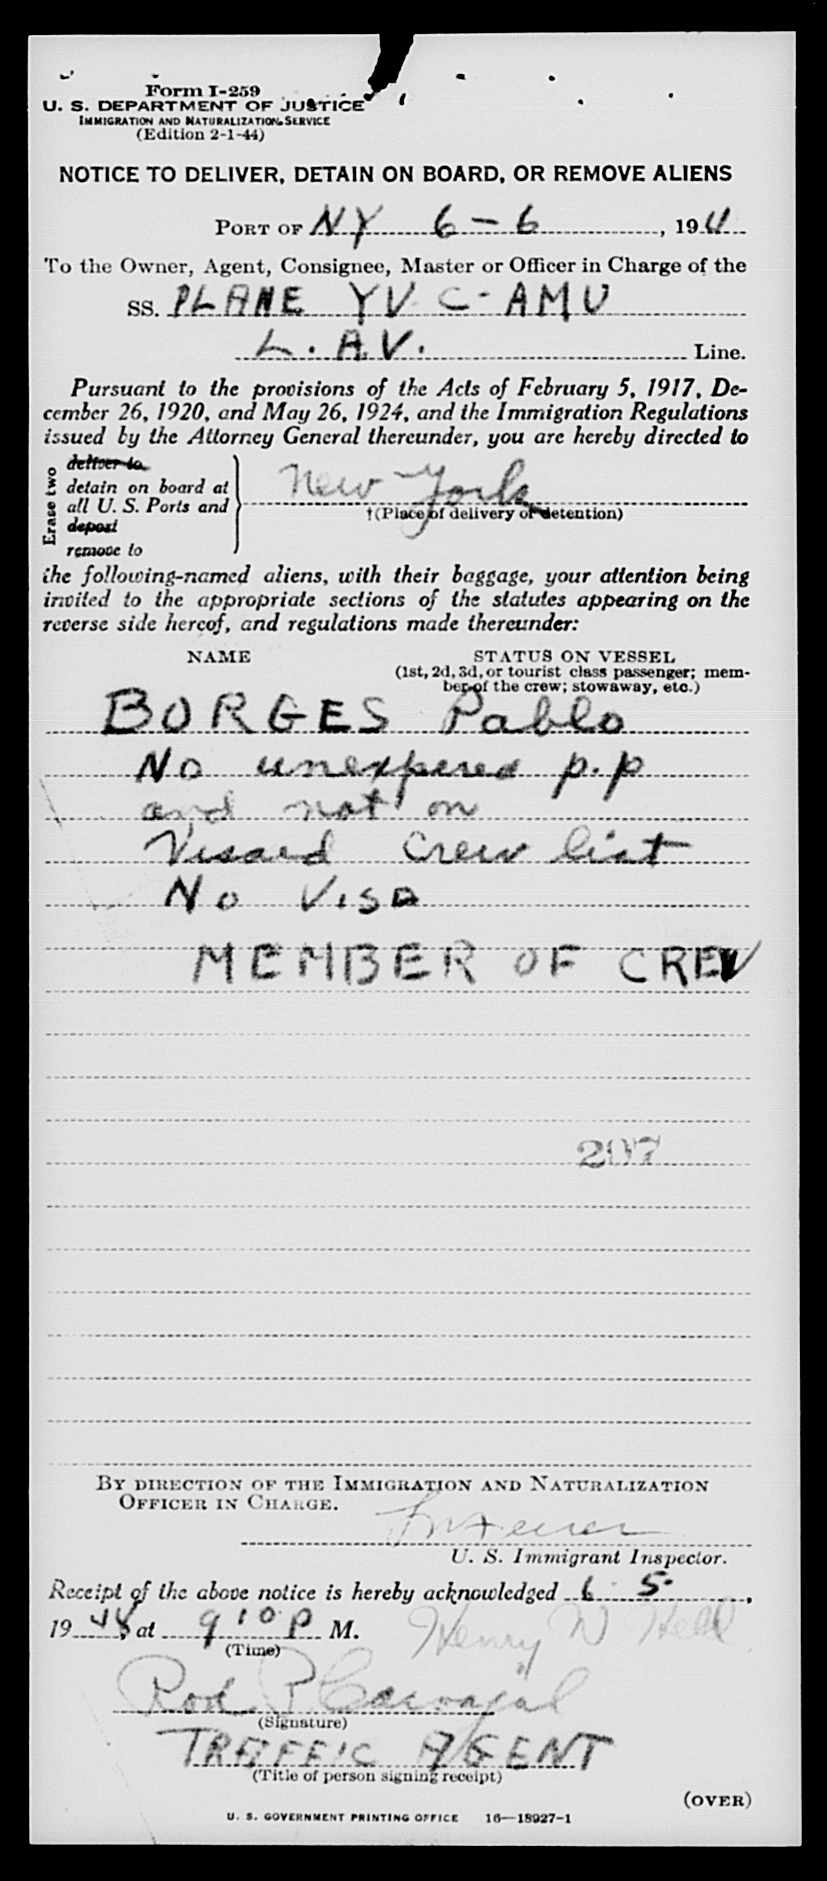 Form I-259
U. S. DEPARTMENT OF JUSTICE
IMMIGRATION AND NATURALIZATION SERVICE
(Edition 2-1-44)
NOTICE TO DELIVER, DETAIN ON BOARD, OR REMOVE ALIENS
PORT OF NY 6-6, 194
To the Owner, Agent, Consignee, Master or Officer in Charge of the
SS. PLANE YV C-AMU
L. A. V. Line.
Pursuant to the provisions of the Acts of February 5, 1917, De-
cember 26, 1920, and May 26, 1924, and the Immigration Regulations
issued by the Attorney General thereunder, you are hereby directed to
Erase two
deliver to
detain on board at
all U. S. Ports and
deport
remove to
New York
†(Place of delivery or detention)
the following-named aliens, with their baggage, your attention being
invited to the appropriate sections of the statutes appearing on the
reverse side hereof, and regulations made thereunder:
NAME STATUS ON VESSEL
(1st, 2d, 3d, or tourist class passenger; mem-
ber of the crew; stowaway, etc.)
BORGES Pablo
No unexpired p.p
and not on
Visaed Crew list
No VISA
MEMBER OF CREW
207
BY DIRECTION OF THE IMMIGRATION AND NATURALIZATION
OFFICER IN CHARGE.
U. S. Immigrant Inspector.
Receipt of the above notice is hereby acknowledged 6 5,
1948, at 9 10 P M.
(Time)
Henry W
Rod P. Carvajal
(Signature)
TRAFFIC AGENT
(Title of person signing receipt)
(OVER)
U. S. GOVERNMENT PRINTING OFFICE 16—18927-1